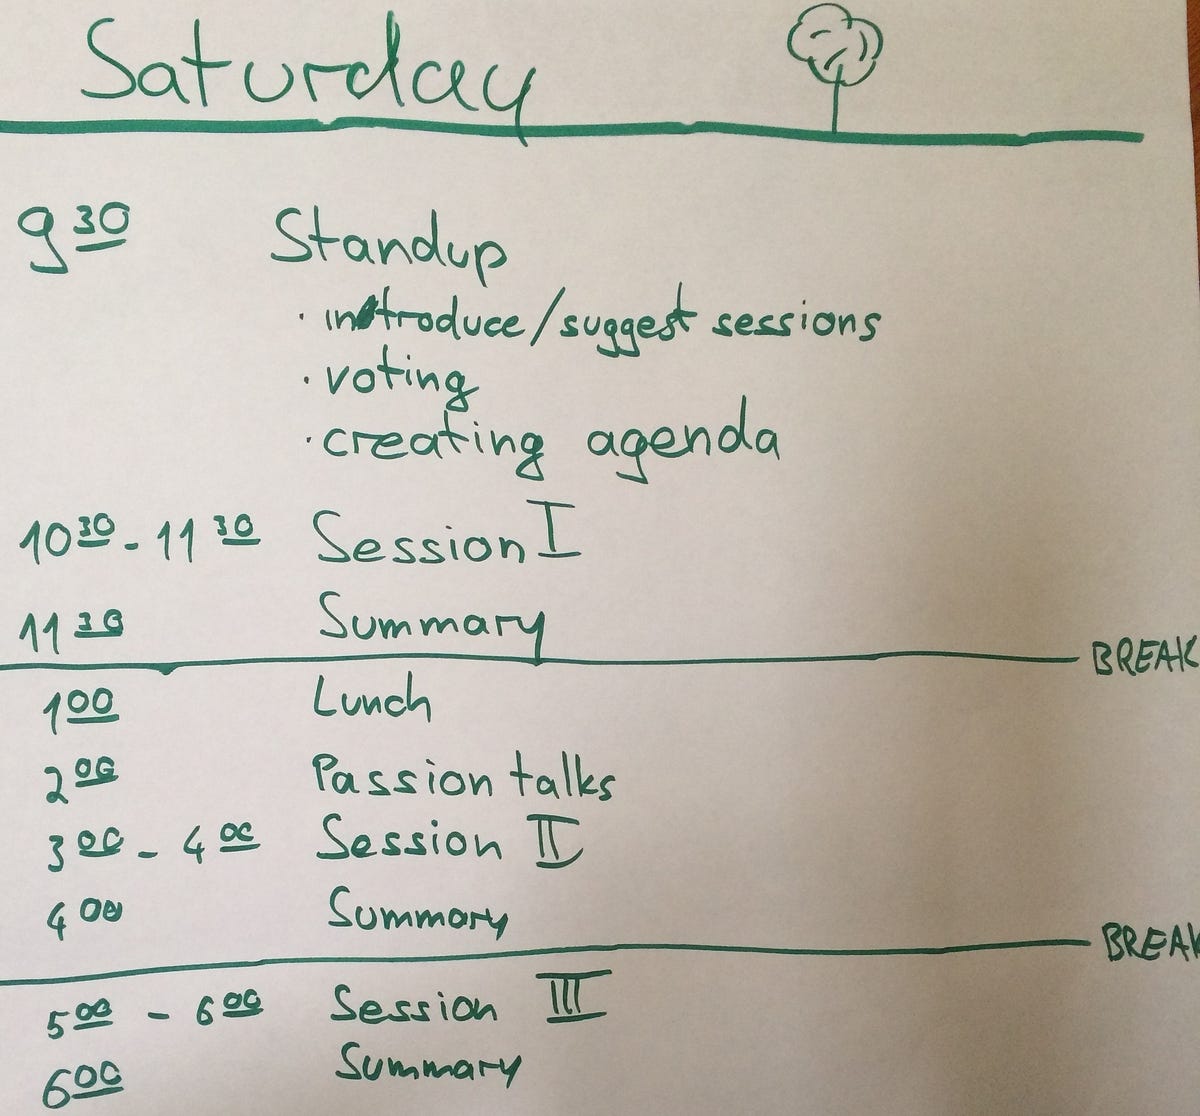 Saturday
9 30 Standup
· introduce/suggest sessions
· voting
· creating agenda
10 30 - 11 30 Session I
11 30 Summary
BREAK
1 00 Lunch
2 00 Passion talks
3 00 - 4 00 Session II
4 00 Summary
BREAK
5 00 - 6 00 Session III
6 00 Summary